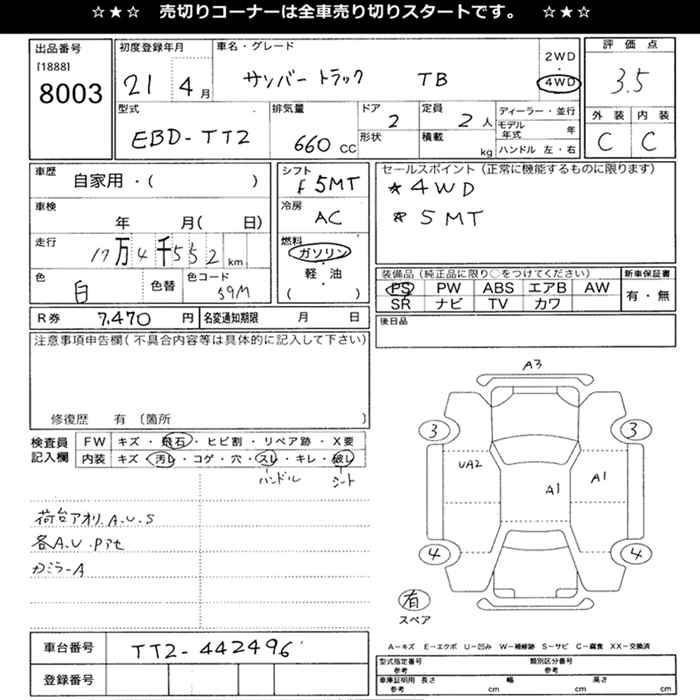 ☆★☆ 売切りコーナーは全車売り切りスタートです。 ☆★☆
出品番号
[1888]
8003
初度登録年月
21 4 月
車名・グレード
サンバートラック TB
2WD
・
4WD
評価点
3.5
型式
EBD-TT2
排気量
660 CC
ドア
2
形状
定員
2 人
積載
kg
ディーラー・並行
モデル年式 年
ハンドル 左・右
外装 内装
C C
車歴
自家用・( )
車検
年 月( 日)
走行
17万4千552 km
色
白
色替
色コード
59M
シフト
F5MT
冷房
AC
燃料
ガソリン
・
軽・油
( )
セールスポイント(正常に機能するものに限ります)
*4WD
*5MT
装備品(純正品に限り○をつけてください)
PS PW ABS エアB AW
SR ナビ TV カワ
新車保証書
有・無
R券 7,470 円
名変通知期限 月 日
後日品
注意事項申告欄(不具合内容等は具体的に記入して下さい)
修復歴 有 〔箇所 〕
検査員
記入欄
FW キズ・飛石・ヒビ割・リペア跡・X要
内装 キズ・汚レ・コゲ・穴・スレ・キレ・破レ
ハンドル シート
荷台アオリ.A.U.S
各A.U.Pアセ
カミラーA
A3
3 3
UA2 A1 A1
4 4
有
スペア
車台番号 TT2-442496
登録番号
A-キズ E-エクボ U-凹み W-補修跡 S-サビ C-腐食 XX-交換済
型式指定番号
参考
類別区分番号
参考
車庫証明用 長さ 幅 高さ
参考 cm cm cm